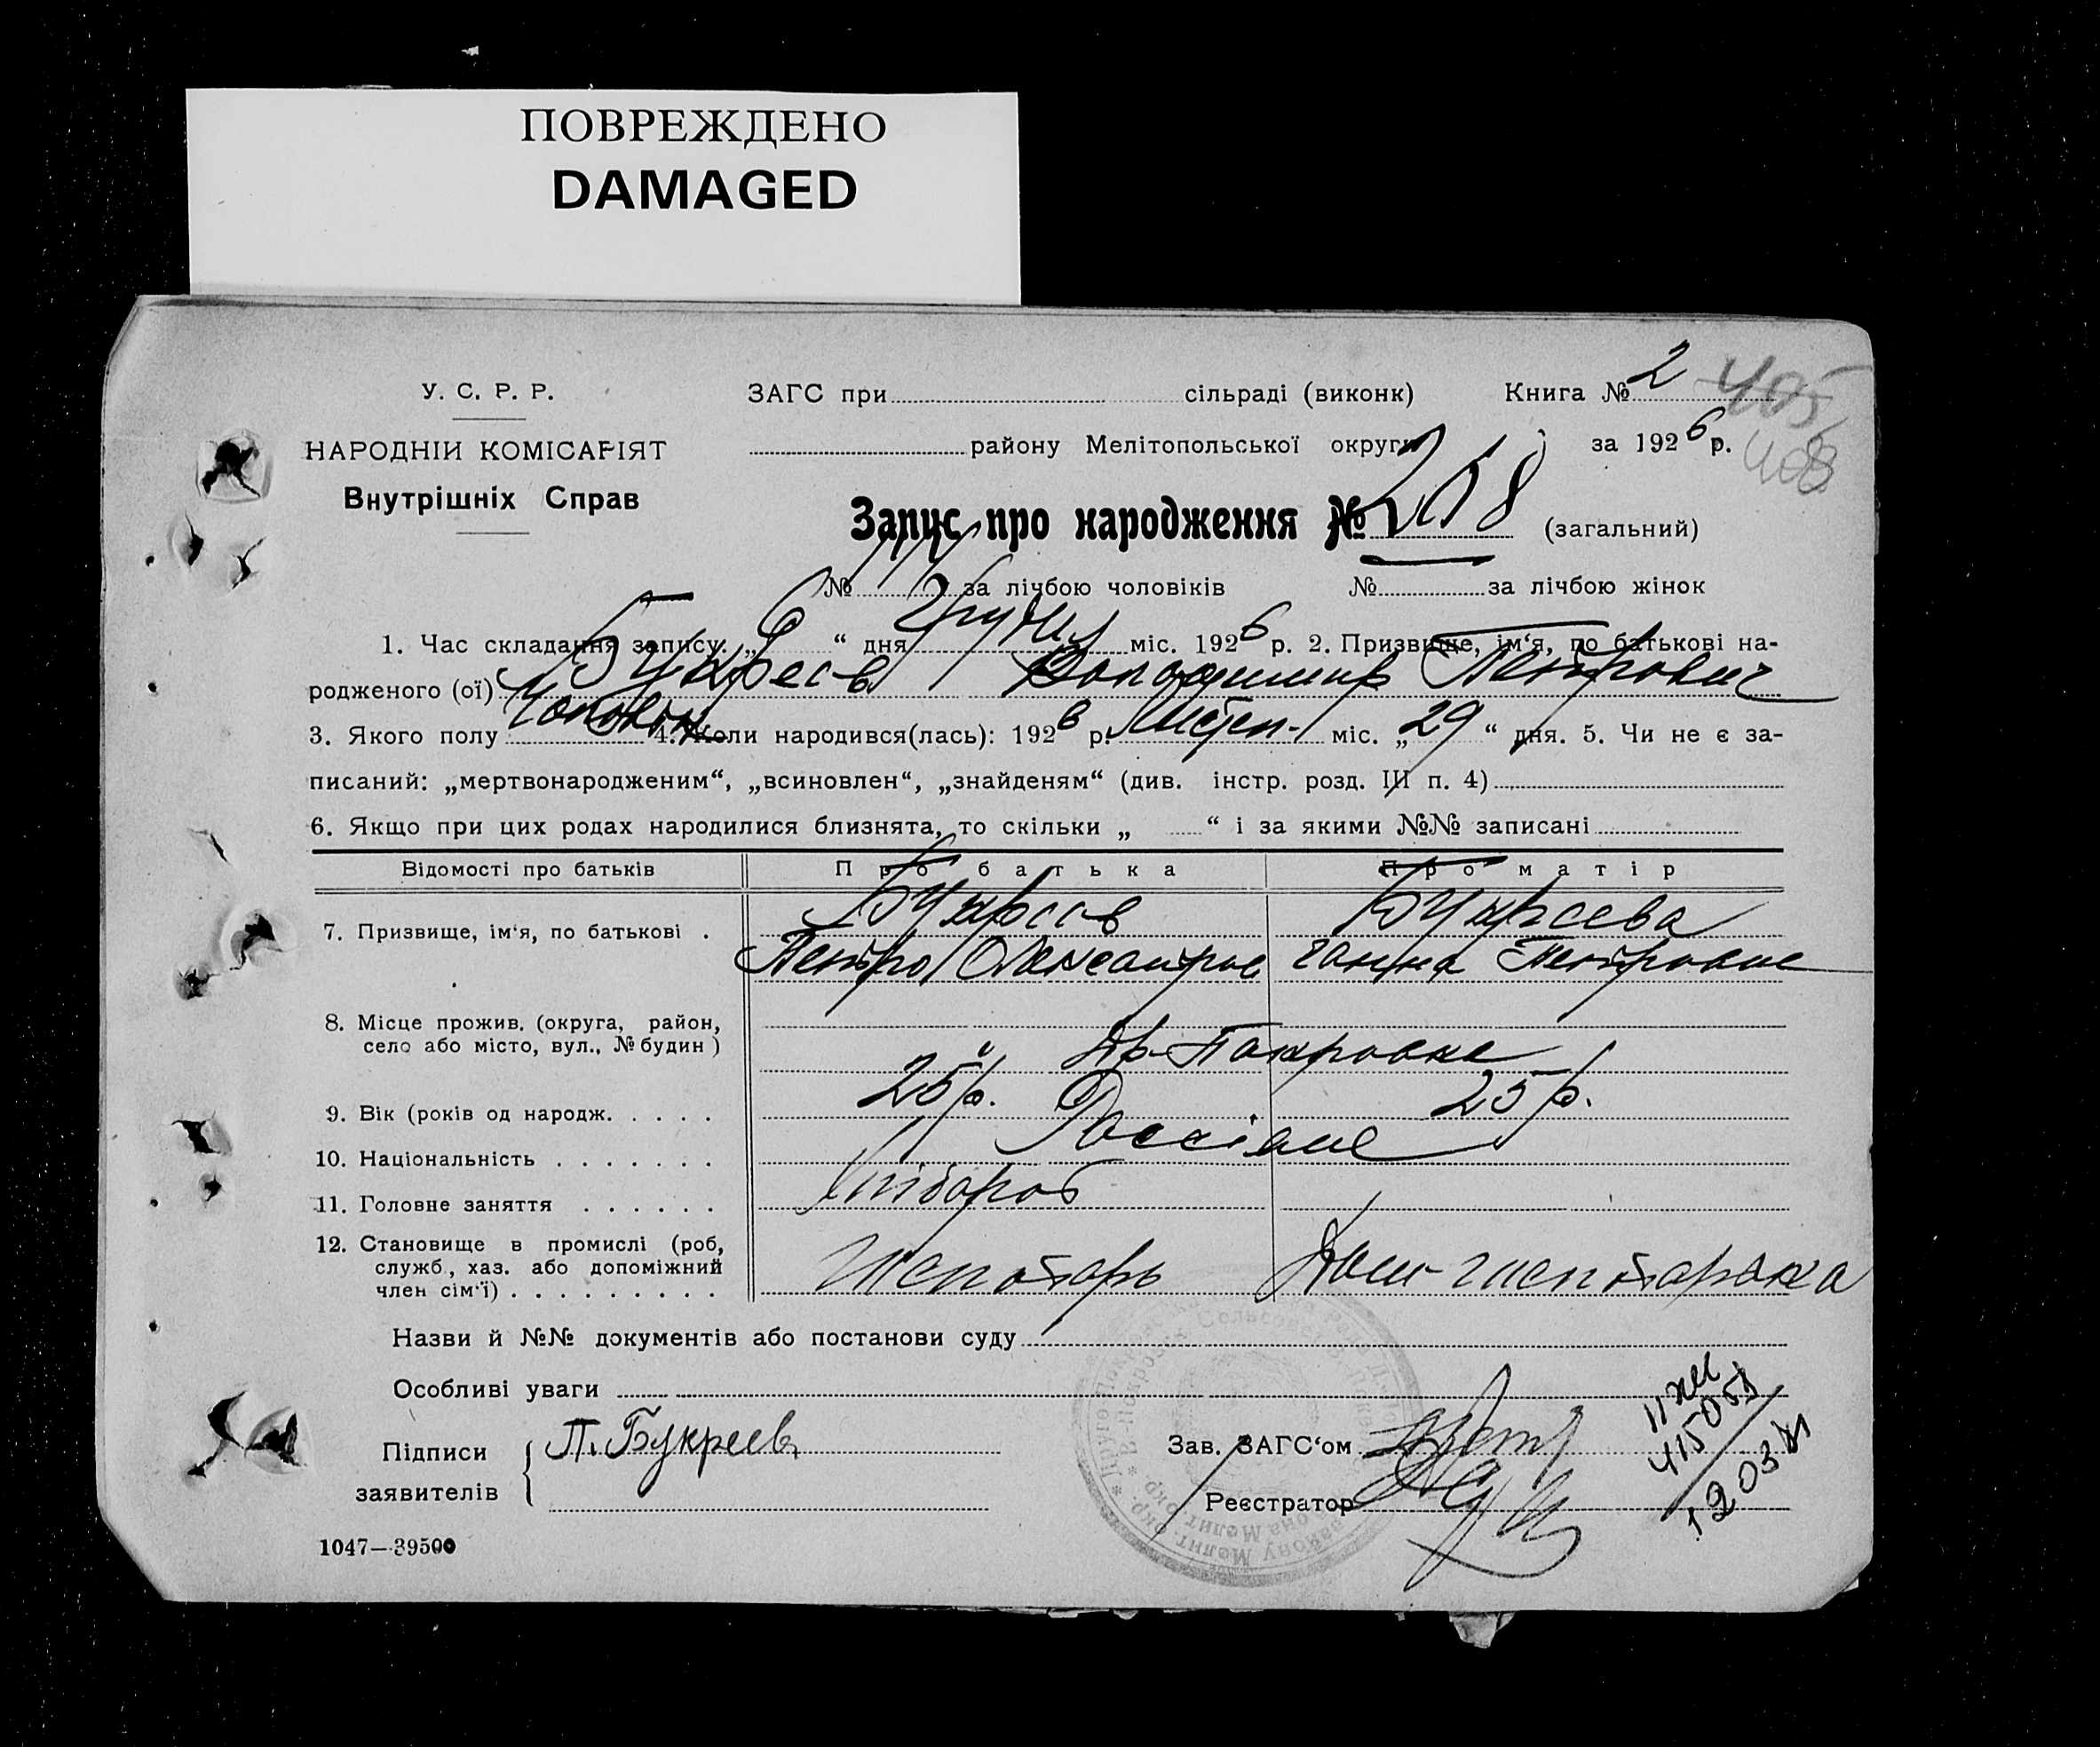 ПОВРЕЖДЕНО
DAMAGED
У. С. Р. Р.
ЗАГС при сільраді (виконк)
Книга № 2
405
НАРОДНІЙ КОМІСАРІЯТ
району Мелітопольської округи
за 1926 р.
408
Внутрішніх Справ
Запис про народження № 218 (загальний)
№ за лічбою чоловіків № за лічбою жінок
1. Час складання запису: „6“ дня Грудня міс. 1926 р. 2. Призвище, ім‘я, по батькові на-
родженого (ої) Букреєв Володимир Петрович
3. Якого полу Чоловік 4. Коли народився(лась): 1926 р. Листоп. міс. „29“ дня. 5. Чи не є за-
писаний: „мертвонародженим“, „всиновлен“, „знайденям“ (див. інстр. розд. III п. 4)
6. Якщо при цих родах народилися близнята, то скільки „ “ і за якими №№ записані
Відомості про батьків Про батька Про матір
7. Призвище, ім‘я, по батькові . Букреєв Букреєва
Петро Олександров Ганна Петровна
8. Місце прожив. (округа, район,
село або місто, вул., № будин) Покровка
9. Вік (років од народж. . . . . 25 р. 25 р.
10. Національність . . . . . . . Россіяне
11. Головне заняття . . . . . . Хлібороб
12. Становище в промислі (роб,
служб., хаз. або допоміжний
член сім‘ї) . . . . . . . . .
Назви й №№ документів або постанови суду
Особливі уваги
Підписи
заявителів
П. Букреев
Зав. ЗАГС‘ом
Реєстратор
415058
1047—39500